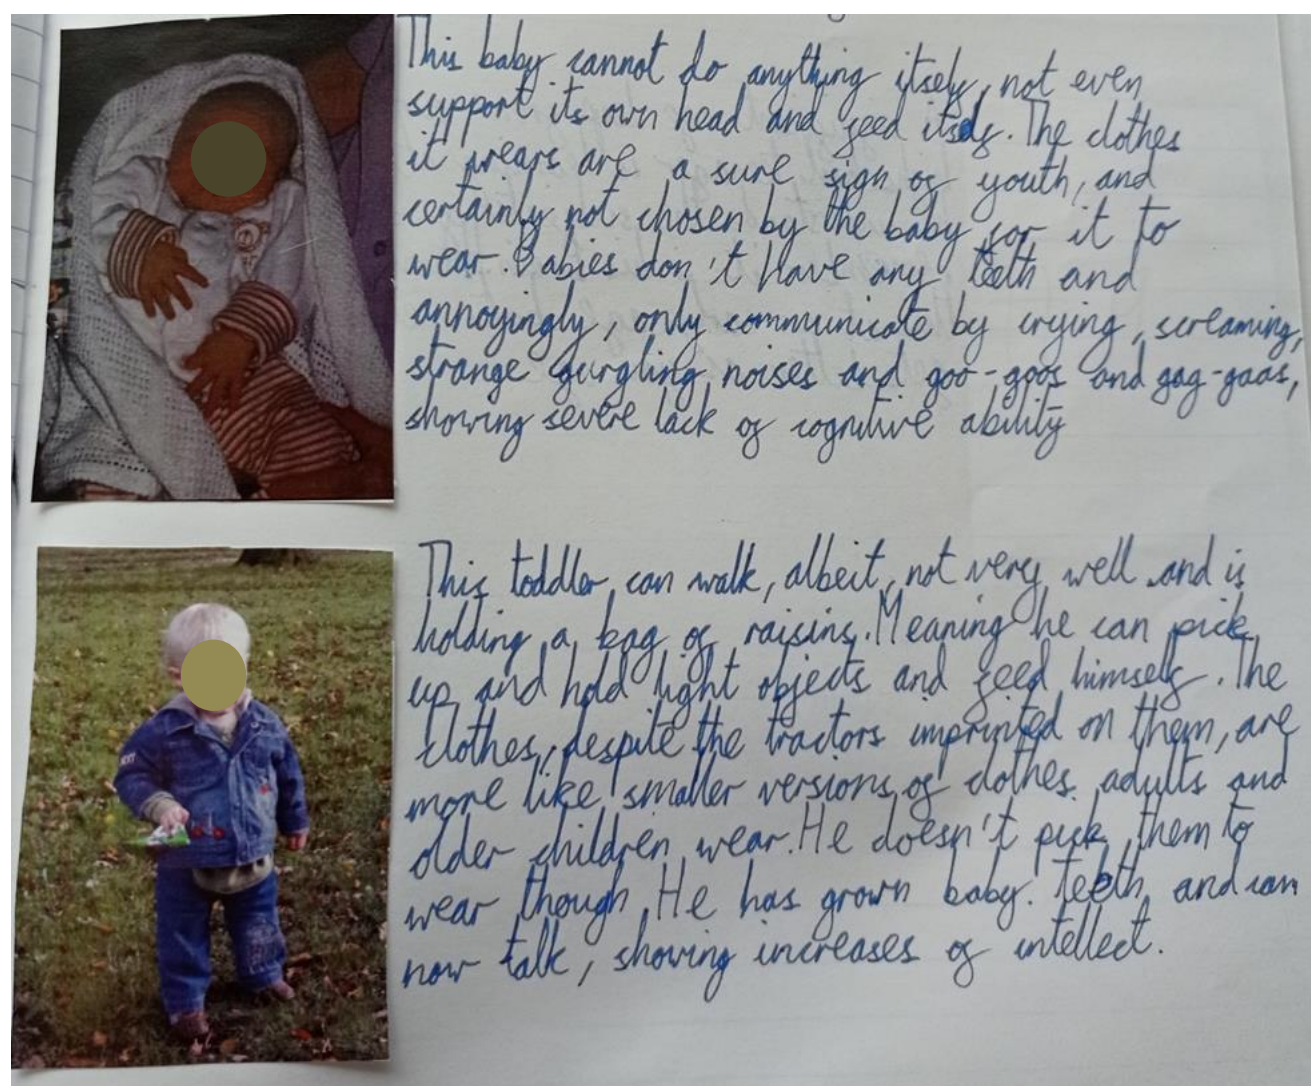 This baby cannot do anything itself, not even
support its own head and feed itself. The clothes
it wears are a sure sign of youth, and
certainly not chosen by the baby for it to
wear. Babies don't have any teeth and
annoyingly, only communicate by crying, screaming,
strange gurgling noises and goo-goos and gag-gaas,
showing severe lack of cognitive ability
This toddler can walk, albeit, not very well and is
holding a bag of raisins. Meaning he can pick
up and hold light objects and feed himself. The
clothes, despite the tractors imprinted on them, are
more like smaller versions of clothes adults and
older children wear. He doesn't pick them to
wear though. He has grown baby teeth and can
now talk, showing increases of intellect.